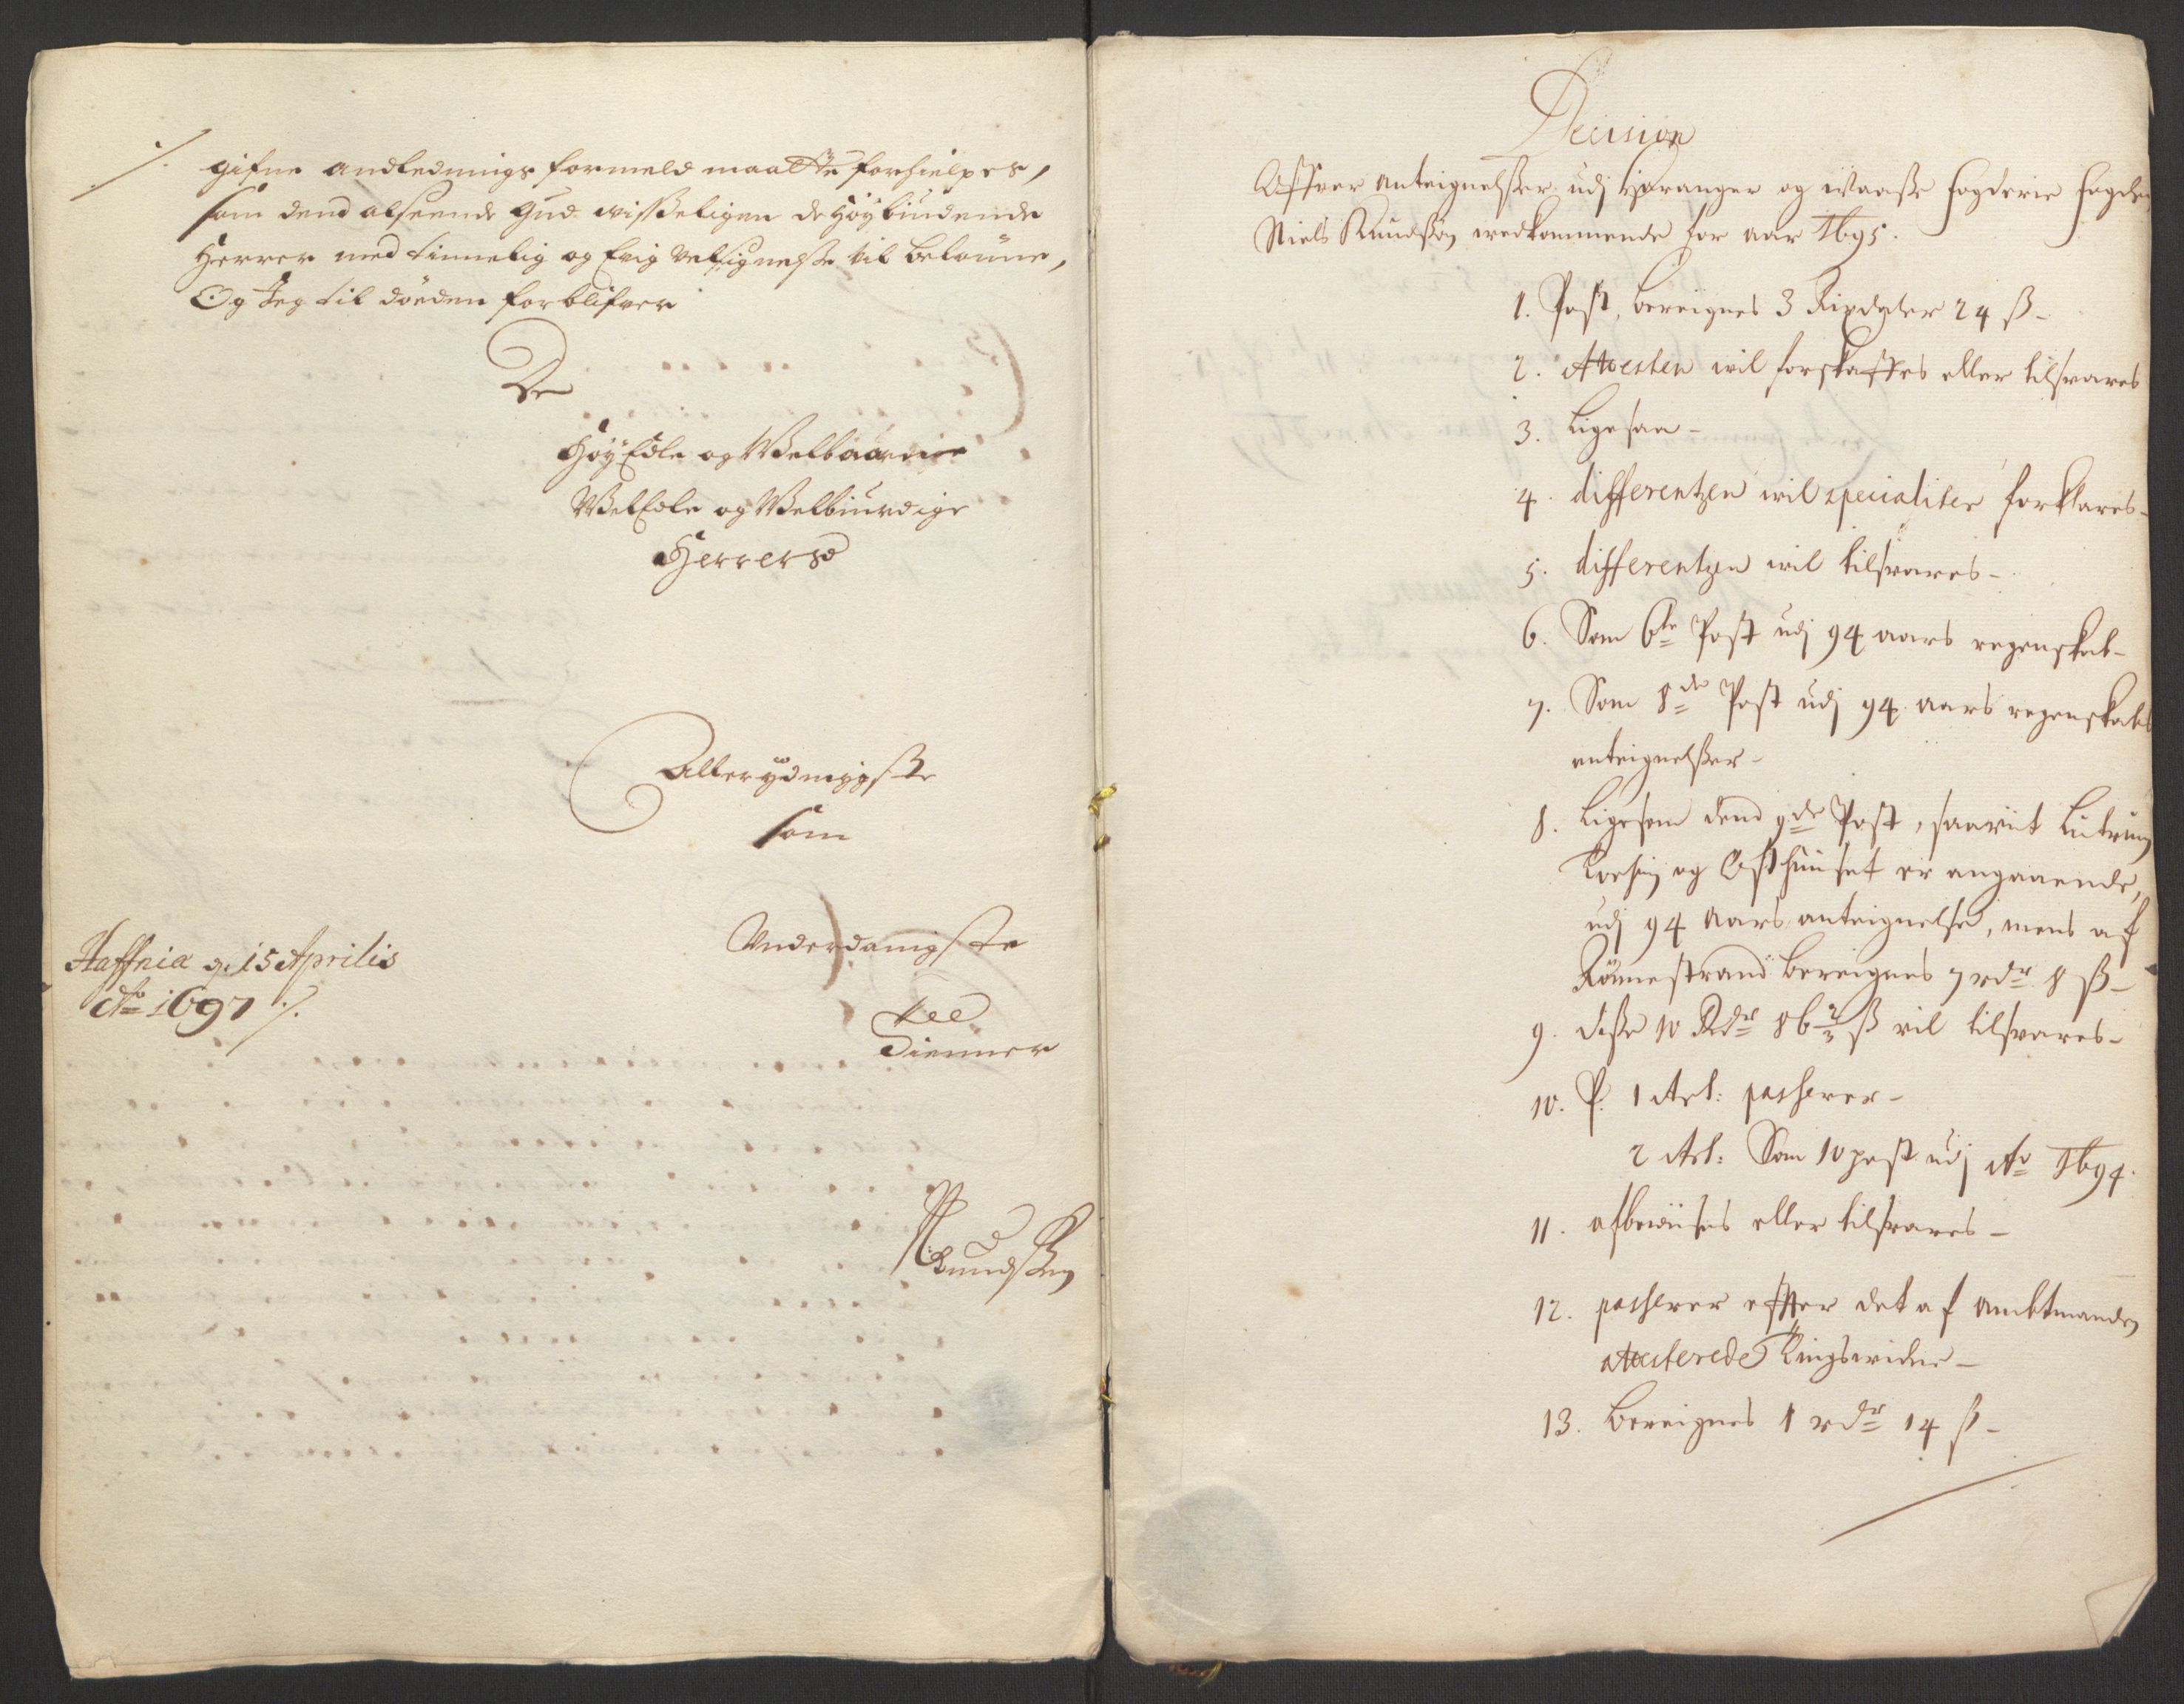 ./. gifne andlednings formeld maatte forhielpes,
som dend alseende Gud wisseligen de Høybiudende
Herrer med timmelig og Evig velsignelse vil belønne,
Og Jeg til døeden forblifver
De
HøyEdle og Welbaarne
WelEdle og Welbiurdige
Herrers
Allerydmygste
som
Underdanigste
Tienner
Haffnia d. 15 Aprilis
Ao 1697 ./.
NKnudsen
Decision
Offver anteignelser udj Hardanger og Waasse fogderie fogden
Niels Knudsøn wedkommende for aar 1695.
1. Post, bereignes 3 Rixdaler 24 ß -
2. Attesten wil forskaffes eller tilsvares
3. Ligesaa -
4. differentzen wil specialiter forklares -
5. differentzen wil tilsvares -
6. Som 6te Post udj 94 aars regenskab -
7. Som 8de Post udj 94 aars regenskabs
anteignelser -
8. Ligesom dend 9de Post, saawit
og er angaaende,
udj 94 aars anteignelse, mens af
bereignes 7 rdr 8 ß -
9. disse 10 Rdr 86 2/3 ß vil tilsvares -
10. P. 1 Art: passerer -
2 Art: Som 10 post udj Ao 1694.
11. afbewiises eller tilsvares -
12. passerer effter det af amktmanden
attesterede Tingswidne -
13. Bereignes 1 rdr 14 ß -